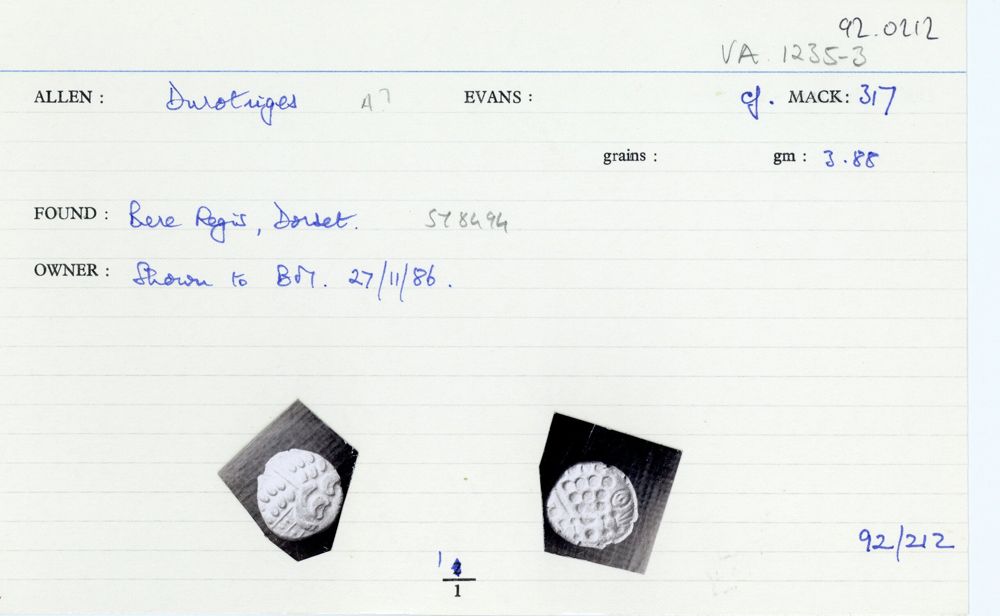 92.0212
VA 1235-3
ALLEN : Durotriges A? EVANS : cf. MACK: 317
grains : gm : 3.88
FOUND : Bere Regis, Dorset. SY8494
OWNER : Shown to BM. 27/11/86.
92/212
1
1